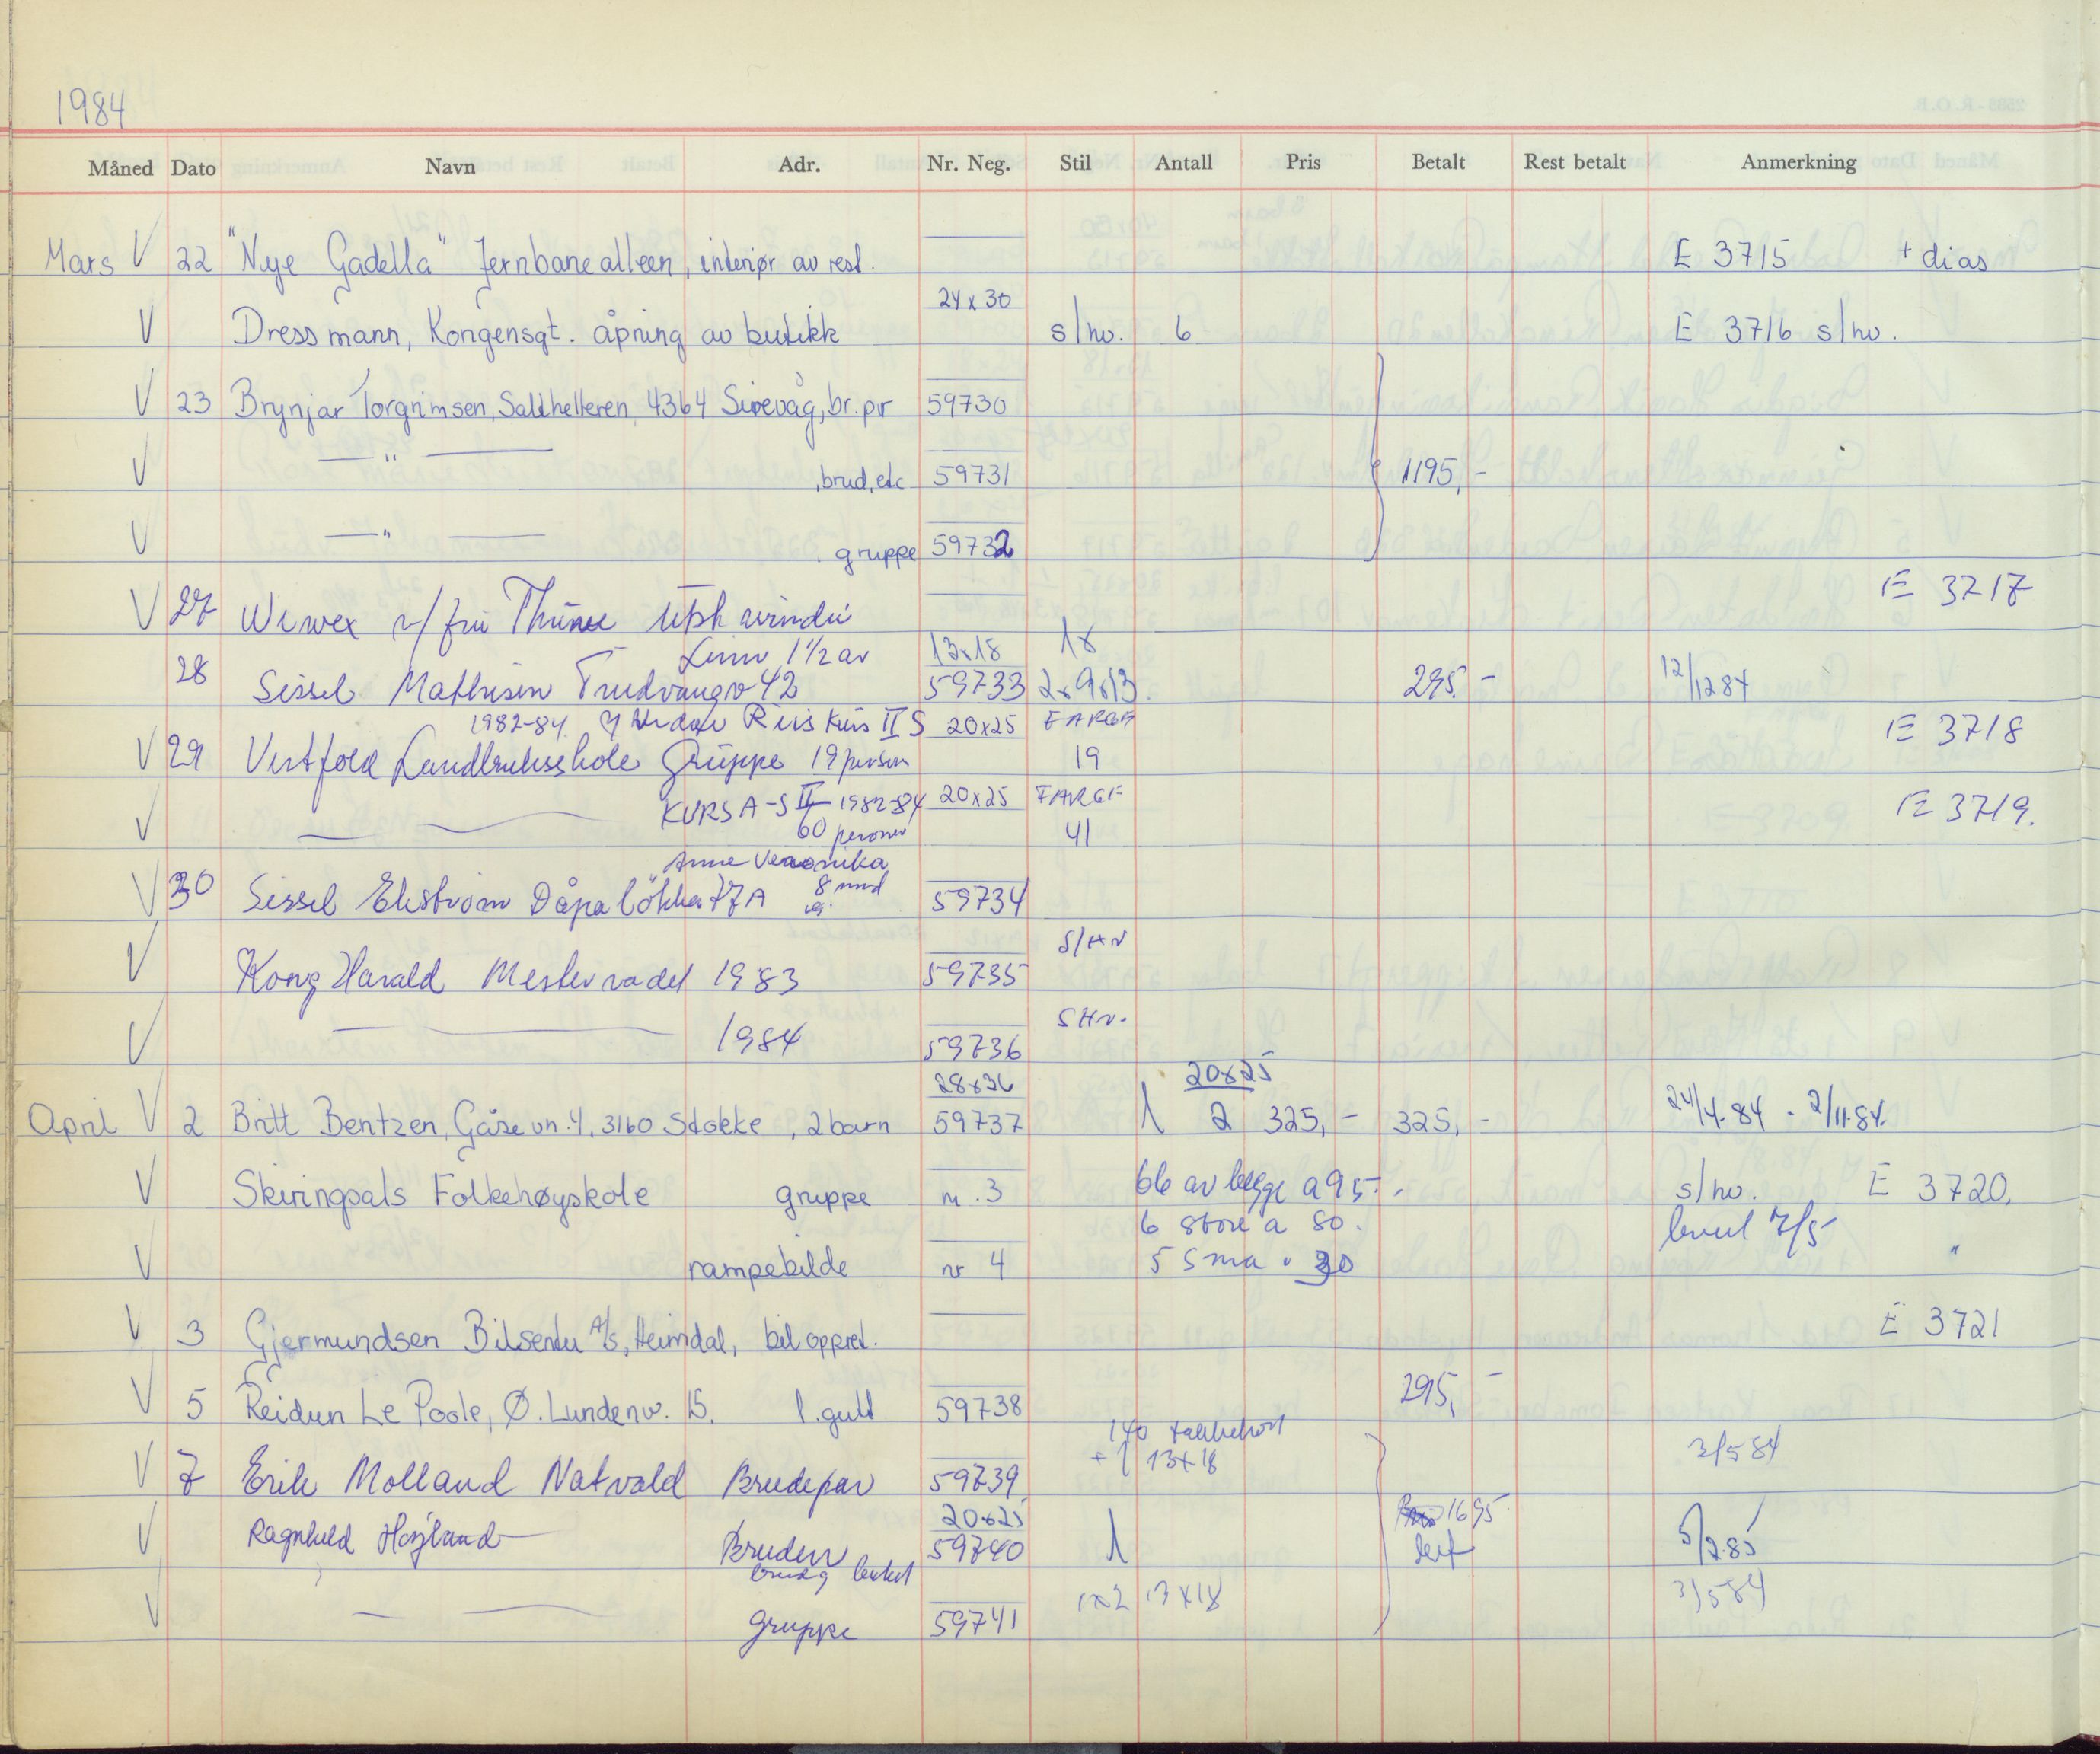 1984
Måned Dato Navn Adr. Nr. Neg. Stil Antall Pris Betalt Rest betalt Anmerkning
Mars V 22 "Nye Gadella" Jernbanealleen, interiør av rest. E 3715 + dias
24x30
V Dressmann, Kongensgt. åpning av butikk s/hv. 6 E 3716 s/hv.
V 23 Brynjar Torgrimsen, Salthelleren, 4364 Sirevåg, br.pr 59730
V —"— , brud, etc 59731 1195,-
V —"— gruppe 59732
V 27 Wewex v/ fru E 3717
Linn 1 1/2 år 13x18 18
28 Sissel Mathisen Trudvangv 42 59733 2x9x13 295.- 12/1284
1982-84. Riis Kurs II S 20x25 FARGE E 3718
V 29 Vestfold Landbruksskole Gruppe 19 person 19
KURS A-S II 1982-84 20x25 FARGE E 3719.
V — — 60 personer 41
Anne Veronika
V 30 Sissel Ekstrøm Dåpaløkka 77A 8 mnd 59734
S/HV
V Kong Harald Mesterradet 1983 59735
SHv.
V — — 1984 59736
28x36 20x25
April V 2 Britt Bentzen, Gåsevn. 4, 3160 Stokke, 2 barn 59737 1 2 325,- 325,- 24/4-84 - 2/11-84.
V Skiringsals Folkehøyskole gruppe nr. 3 66 av begge a 95.- s/hv. E 3720.
6 store a 80. levert 7/5
V rampebilde nr 4 5 små " 30 "
V 3 Gjermundsen Bilsenter A/S, Heimdal, bil oppret. E 3721
V 5 Reidun Le Poole, Ø. Lundenv. 15. 1. gutt 59738 295,-
140 takkekort
V 7 Erik Molland Natvald Brudepar 59739 + 1 13x18 3/5 84
20x25 1695
V Ragnhild Høyland — Bruden 59740 1 5/2.85
brud og 1x2 13x18 3/584
V — — gruppe 59741